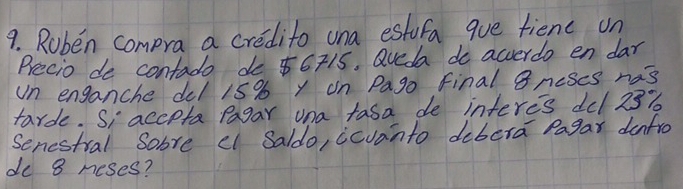 9. Rubén compra a crédito una estufa que tiene un
Precio de contado de $6715. Queda de acuerdo en dar
un enganche del 15% y un Pago final 8 meses más
tarde. Si accpta Pagar una tasa de interés del 23%
semestral sobre el saldo, ¿cuánto deberá Pagar dentro
de 8 meses?